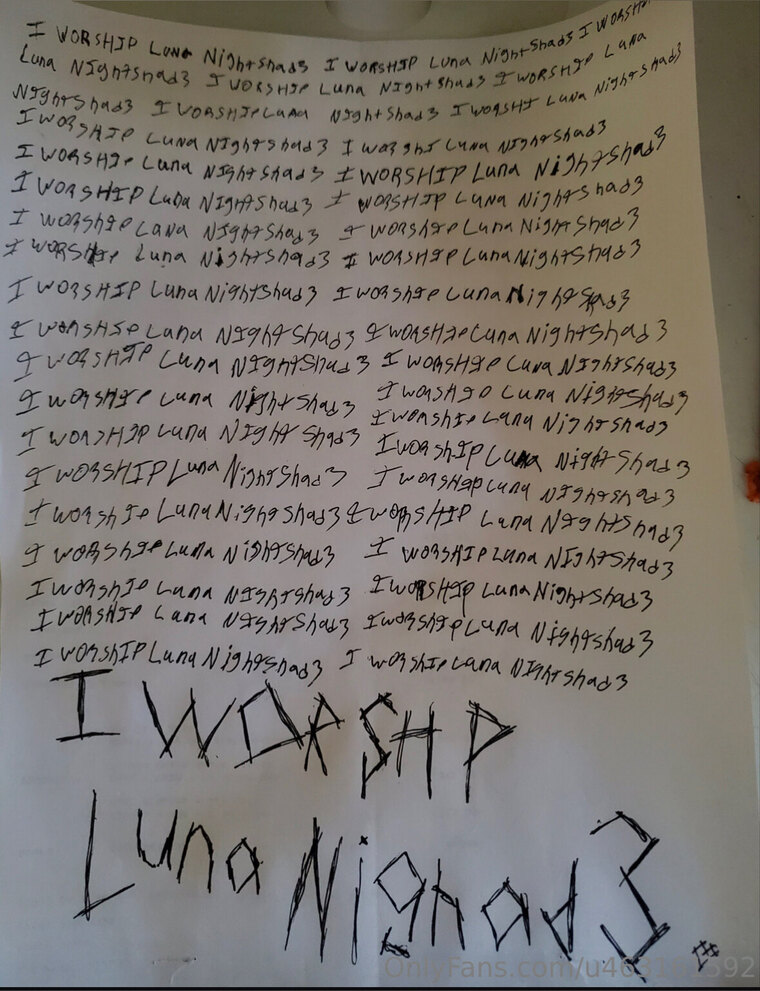 I WORSHIP Luna NightShad3 I WORSHIP Luna NightShad3 I WORSHIP
Luna NIghtshad3 I WORSHIP Luna NIghtshad3 I WORSHIP Luna
NIghtShad3 I WORSHIP Luna NIghtShad3 I WorSHI Luna NightShad3
I WORSHIP Luna NIghtShad3 I WorshI Luna NIghtshad3
I WORSHIP Luna NIghtShad3 I WORSHIP Luna NightShad3
I WORSHIP Luna NIghtShad3 I WORSHIP Luna NIghtshad3
I WorshIP Luna NIghtShad3 I WORShIP Luna NightShad3
I WORSHIP Luna NIghtShad3 I WORSHIP Luna NightShad3
I WORSHIP Luna NightShad3 I WorshIP Luna Nightshad3
I WorSHIP Luna NIghtShad3 I WORSHIP Luna NightShad3
I WORSHIP Luna NIghtShad3 I WORSHIP Luna NIghtShad3
I WORSHIP Luna NIghtShad3 I WORSHIP Luna NightShad3
I WORSHIP Luna NIght Shad3 I WorshIP Luna Nightshad3
I WORSHIP Luna NightShad3 I WorshIP Luna NightShad3
I WorshIP Luna NightShad3 I WorsHIP Luna NIghtshad3
I WORShIP Luna NightShad3 I WORSHIP Luna NIghtShad3
I WorshIP Luna NIghtshad3 I WORSHIP Luna NIghtShad3
I WORSHIP Luna NIghtShad3 I WORSHIP Luna NightShad3
I WORshIP Luna NightShad3 I WorshIP Luna Nightshad3
I WorshIP Luna NIghtshad3
I WORSHP
Luna Nighad3